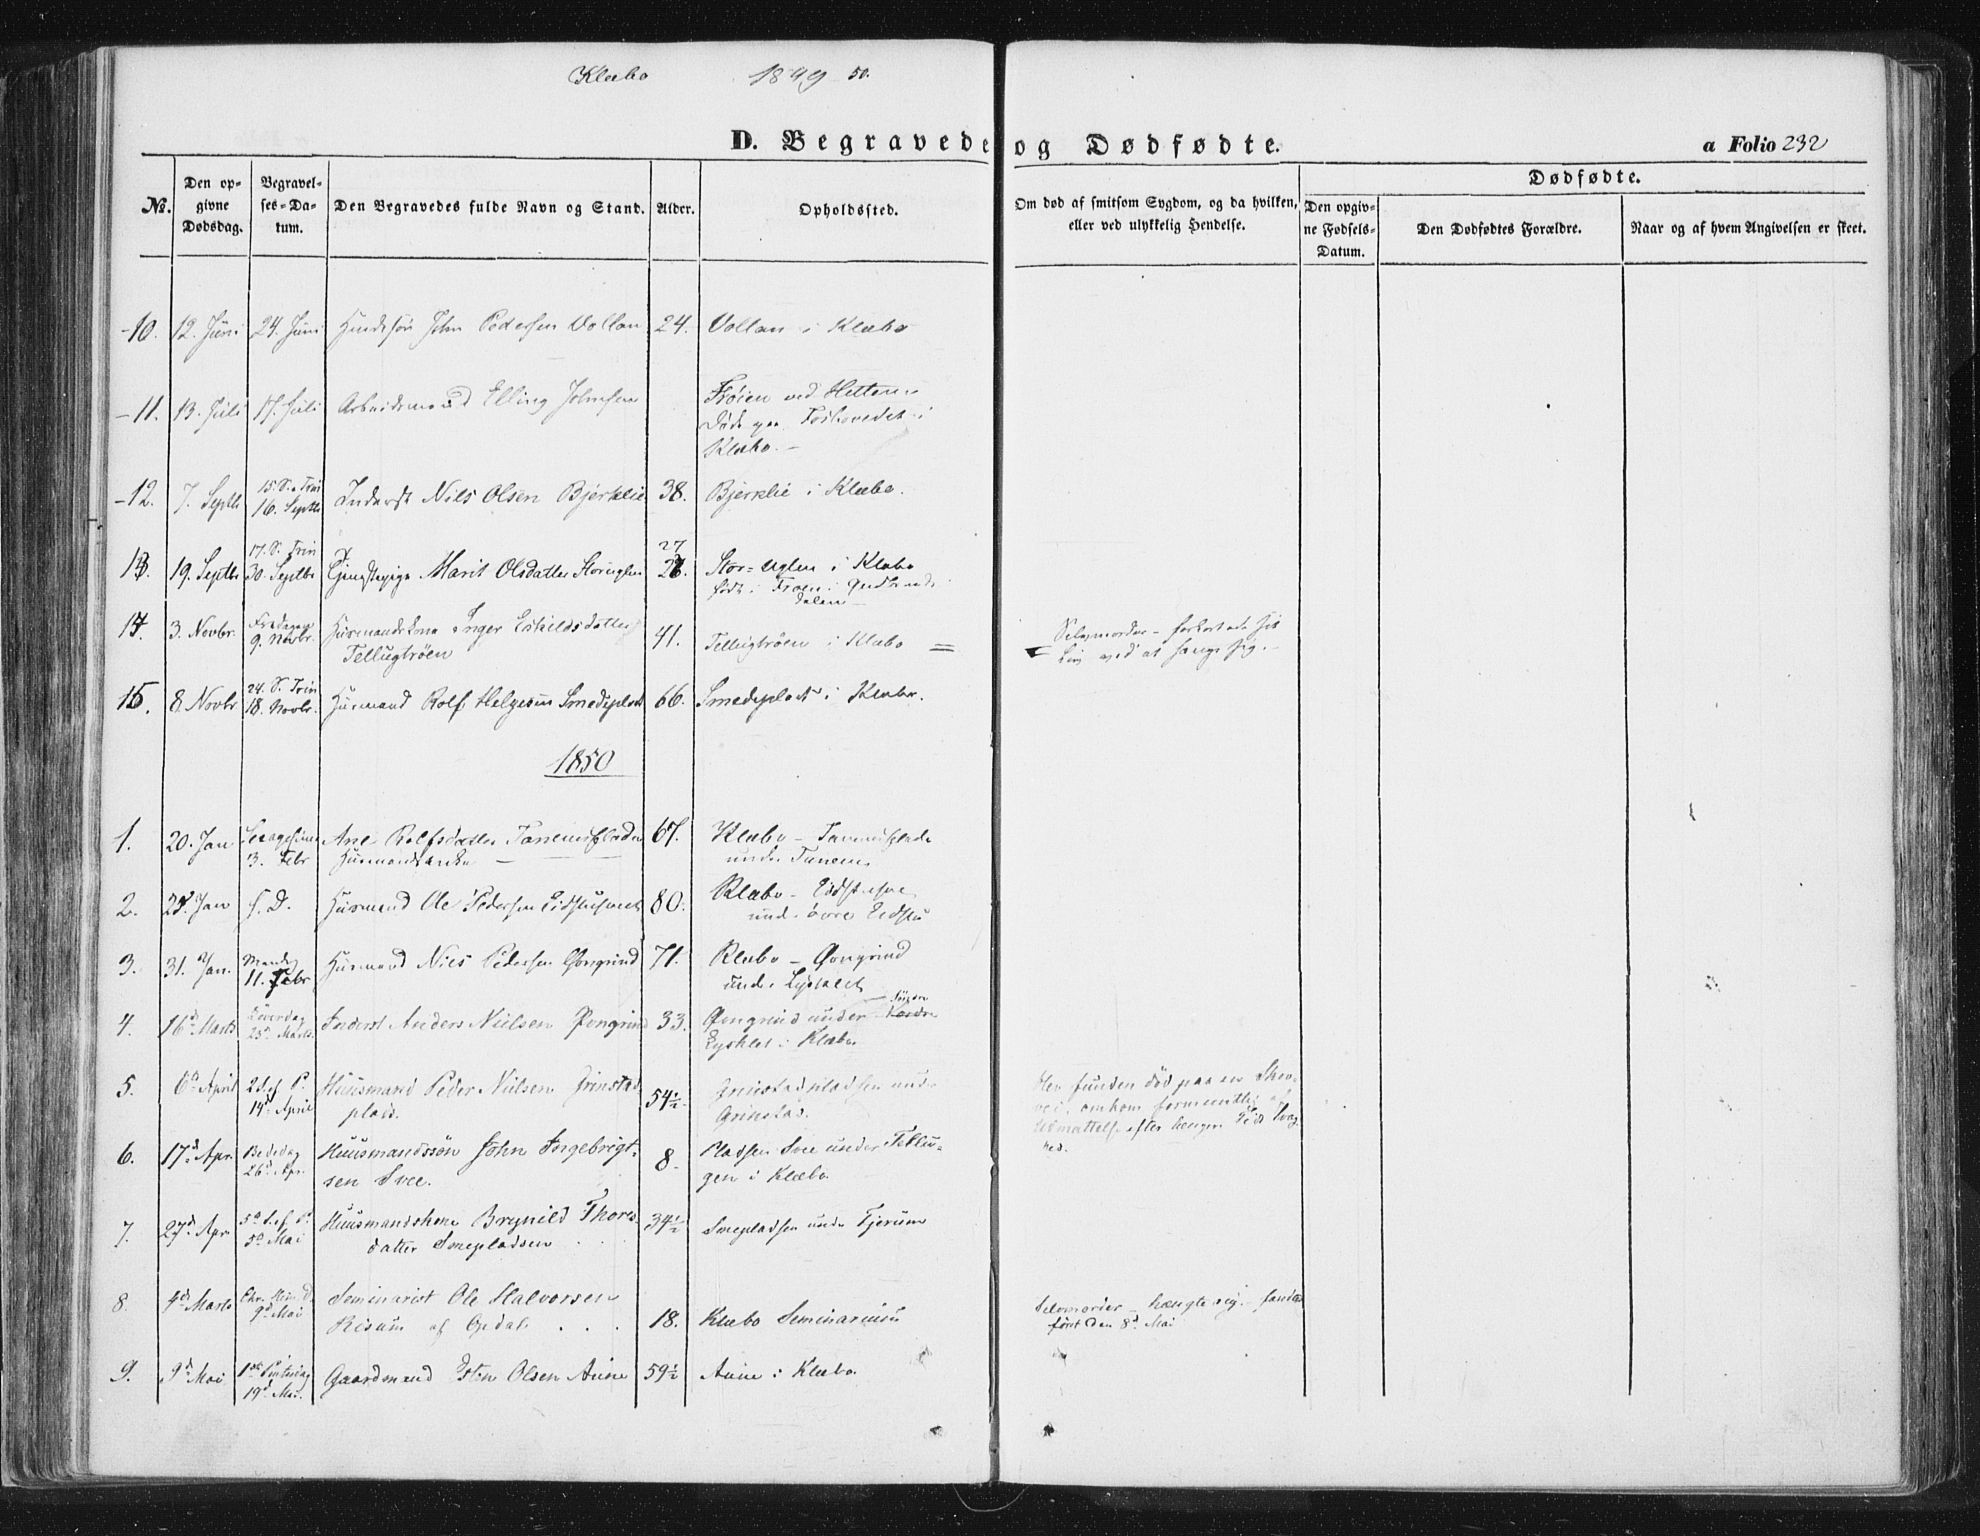 Klæbo 1849 50.
D. Begravede og Dødfødte. a Folio 232
No. Den opgivne Dødsdag. Begravelses-Datum. Den Begravedes fulde Navn og Stand. Alder. Opholdssted. Om død af smitsom Sygdom, og da hvilken, eller ved ulykkelig Hendelse. Dødfødte.
Den opgivne Fødsels-Datum. Den Dødfødtes Forældre. Naar og af hvem Angivelsen er skeet.
10. 12. Juni 24. Juni John Pedersen Vollan 24. Vollan i Klæbo
11. 13. Juli 17. Juli Arbeidsmand Elling Johnsen Frøien ved Hitteren
Døde paa i
Klæbo.
12. 7. Septb 15. S. e. Trin
16. Septb Inderst Nils Olsen Bjerklie 38. Bjerklie i Klæbo.
13. 19. Septb 17. S. Trin
30. Septbr Marit Olsdatter Storuglen 27 Stor-Uglen i Klæbo
født i i Gudbrands
dalen
14. 3. Novbr. Fredag
9. Novbr. Huusmandskone Inger Eskildsdatter
Tellugtrøen 41. Tellugtrøen i Klæbo = Selvmorder - forkortede sit
Liv ved at hænge sig.
15. 8. Novbr 24. S. Trin
18. Novbr. Huusmand Rolf Helgesen Smedsplads 66. Smedsplads i Klæbo.
1850
1. 20. Jan Sexagesima
3. Febr Ane Rolfsdatter Tanemsfladen
Huusmandsenke 67. Klæbo - Tanemsflade
under Tanem
2. 2 Jan s. D. Huusmand Ole Pedersen 80. Klæbo -
under øvre Eidstu
3. 31. Jan. Mandag
11. Febr Huusmand Niels Pedersen Øvngrind 71. Klæbo - Øvngrind
under Lysklet
4. 16d Marts Løverdag
23d Marts. Inderst Anders Nielsen Øvngrind 33. Øvngrind under
Lysklet i Klæbo
5. 6d April 2 S. ef. P.
14d April Huusmand Peder Nielsen Grinstad
plads. 54½. Grinstadpladsen under
Grinstad. blev funden død paa en Skov-
vei, omkom formentlig af
Udmattelse efter længere Tids Svag-
hed.
6. 17d Apr. Bededag
26d Apr. Huusmandssøn John Ingebrigt-
sen Svee. 8. Pladsen Svee under Tellu-
gen i Klæbo
7. 27d Apr 5d S. ef P.
5d Mai Huusmandskone Brynild Thores-
datter Smepladsen 34½ Smepladsen under Tjerum
8. 4d Marts Chr. Him. D.
9d Mai Seminarist Ole Halvorsen
Risum af Opdal. 18. Klæbo Seminarium Selvmorder - hængte sig. - fandtes
først den 8d Mai
9. 9d Mai 1ste Pintsedag
19d Mai. Gaardmand Estin Olsen Aune 59½ Aune i Klæbo